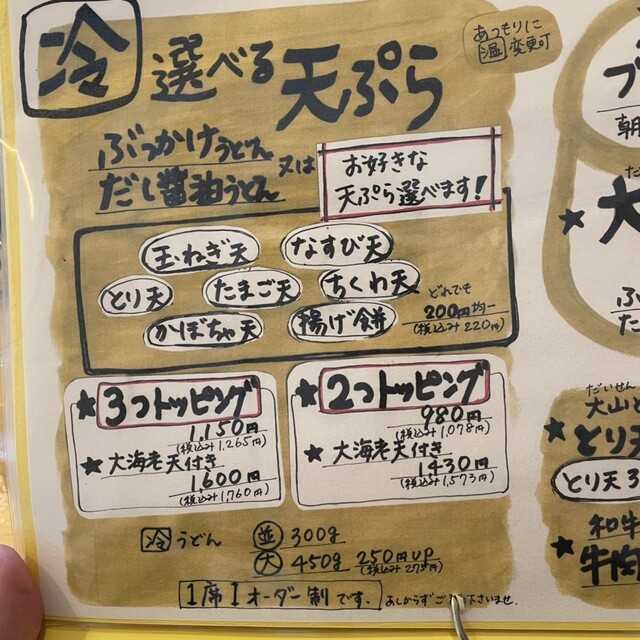 冷 選べる天ぷら
あつもりに
温 変更可
ぶっかけうどん
だし醤油うどん 又は
お好きな
天ぷら選べます!
玉ねぎ天 なすび天
とり天 たまご天 ちくわ天
かぼちゃ天 揚げ餅
どれでも
200円均一
(税込み220円)
★3つトッピング
1,150円
(税込み1,265円)
★大海老天付き
1,600円
(税込み1,760円)
★2つトッピング
980円
(税込み1,078円)
★大海老天付き
1430円
(税込み1,573円)
冷 うどん 並 300g
大 450g 250円UP
(税込み275円)
1席1オーダー制です。 あしからずご了承下さいませ。
ブ
朝
★大
ぶ
た
だいせん
大山と
★とり天
とり天3
和牛
★牛肉